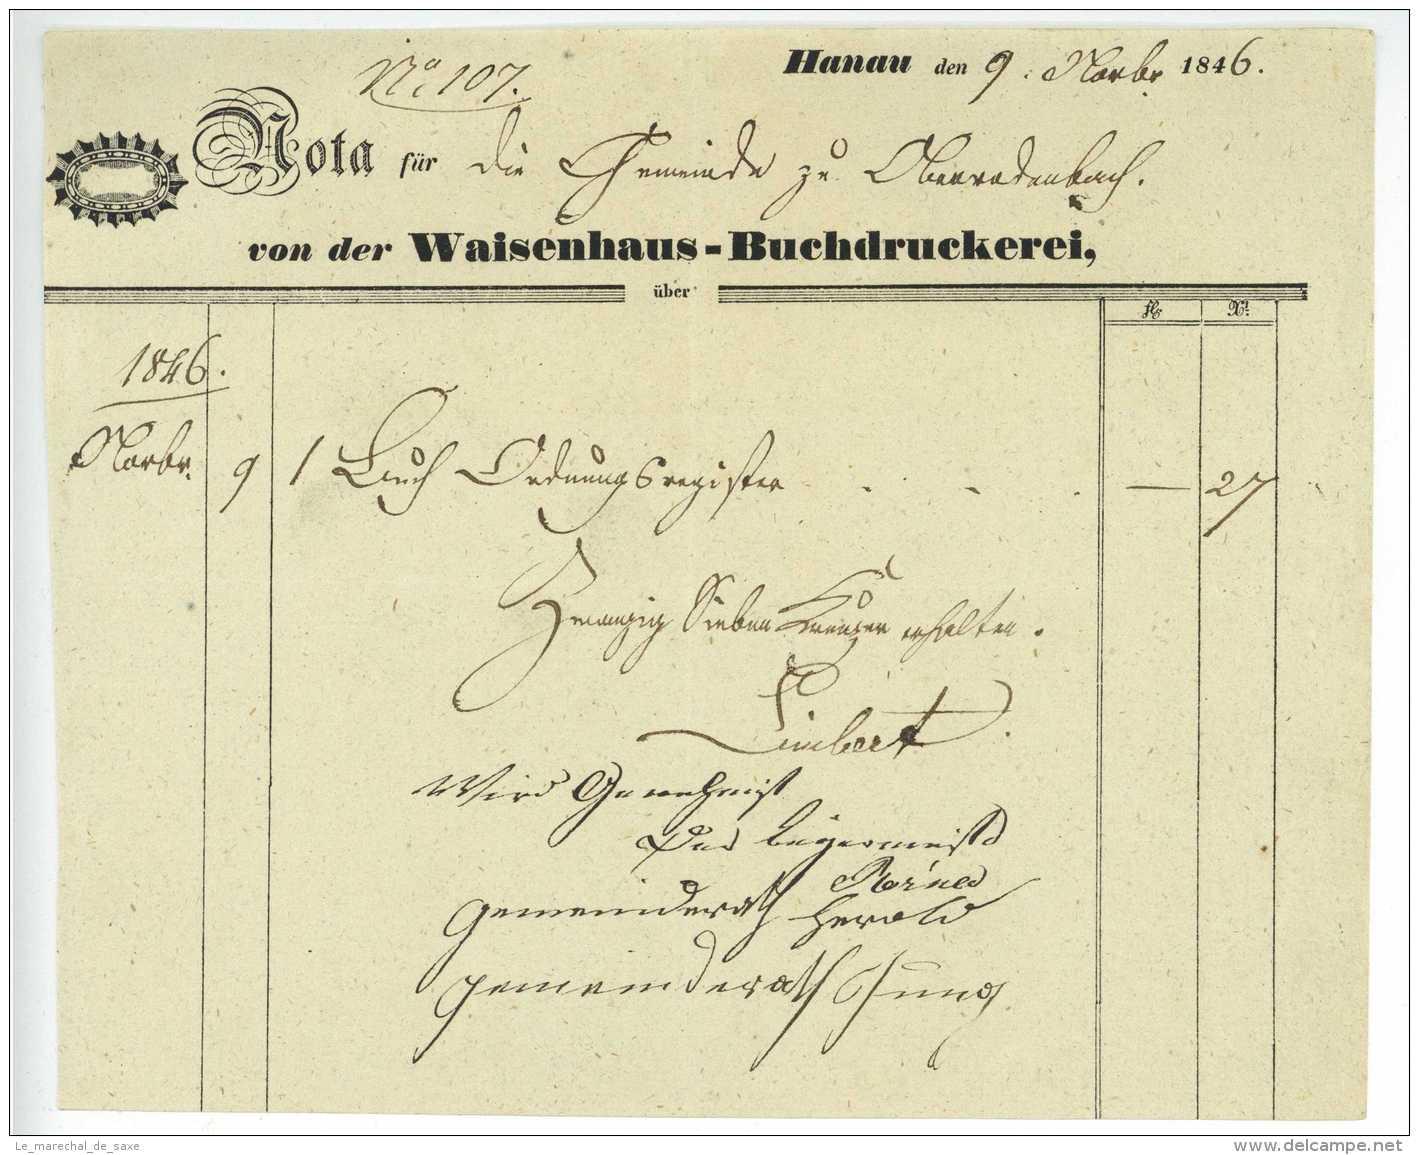 No 107.
Hanau den 9. Novbr 1846.
Nota für die Gemeinde zu Oberrodenbach.
von der Waisenhaus-Buchdruckerei,
über
fl. Xr.
1846.
Novbr. 9 1 Buch Ordnungsregister . . . — 27
Zwanzig Sieben Kreuzer erhalten.
Limbert
Wird Genehmigt
Der Bürgermeister
Gemeinderath Herold
Gemeinderath Jung
Le_marechal_de_saxe
delcampe.net